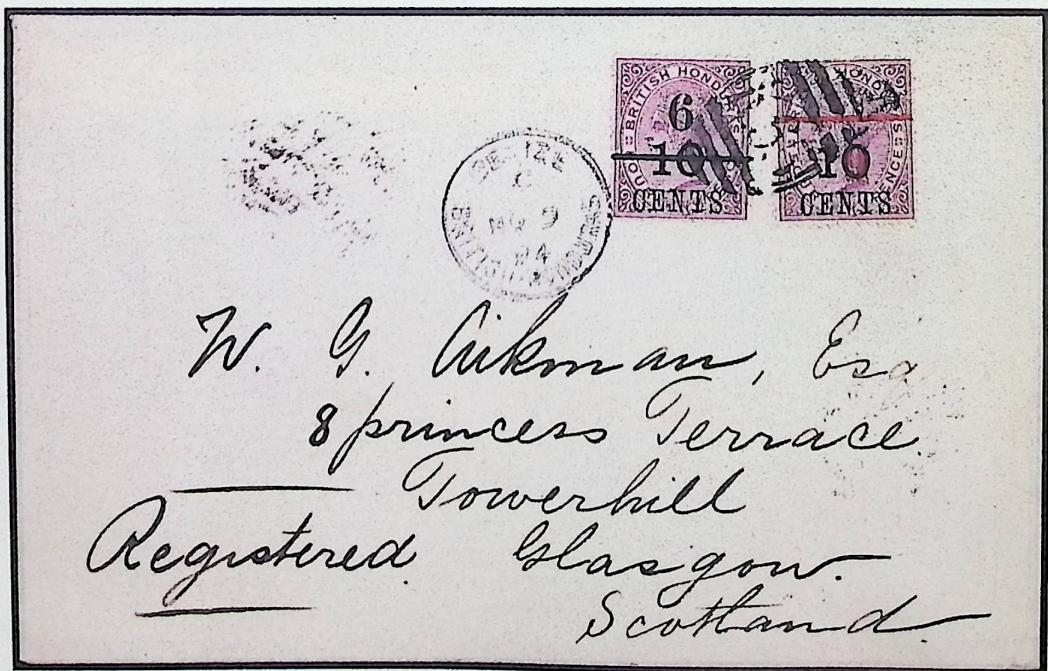 BRITISH HONDURAS
6
10
CENTS
10
CENTS
BELIZE
C
NO 9
94
BRITISH HONDURAS
W. G. Aikman, Esq
8 princess Terrace
Towerhill
Registered Glasgow.
Scotland